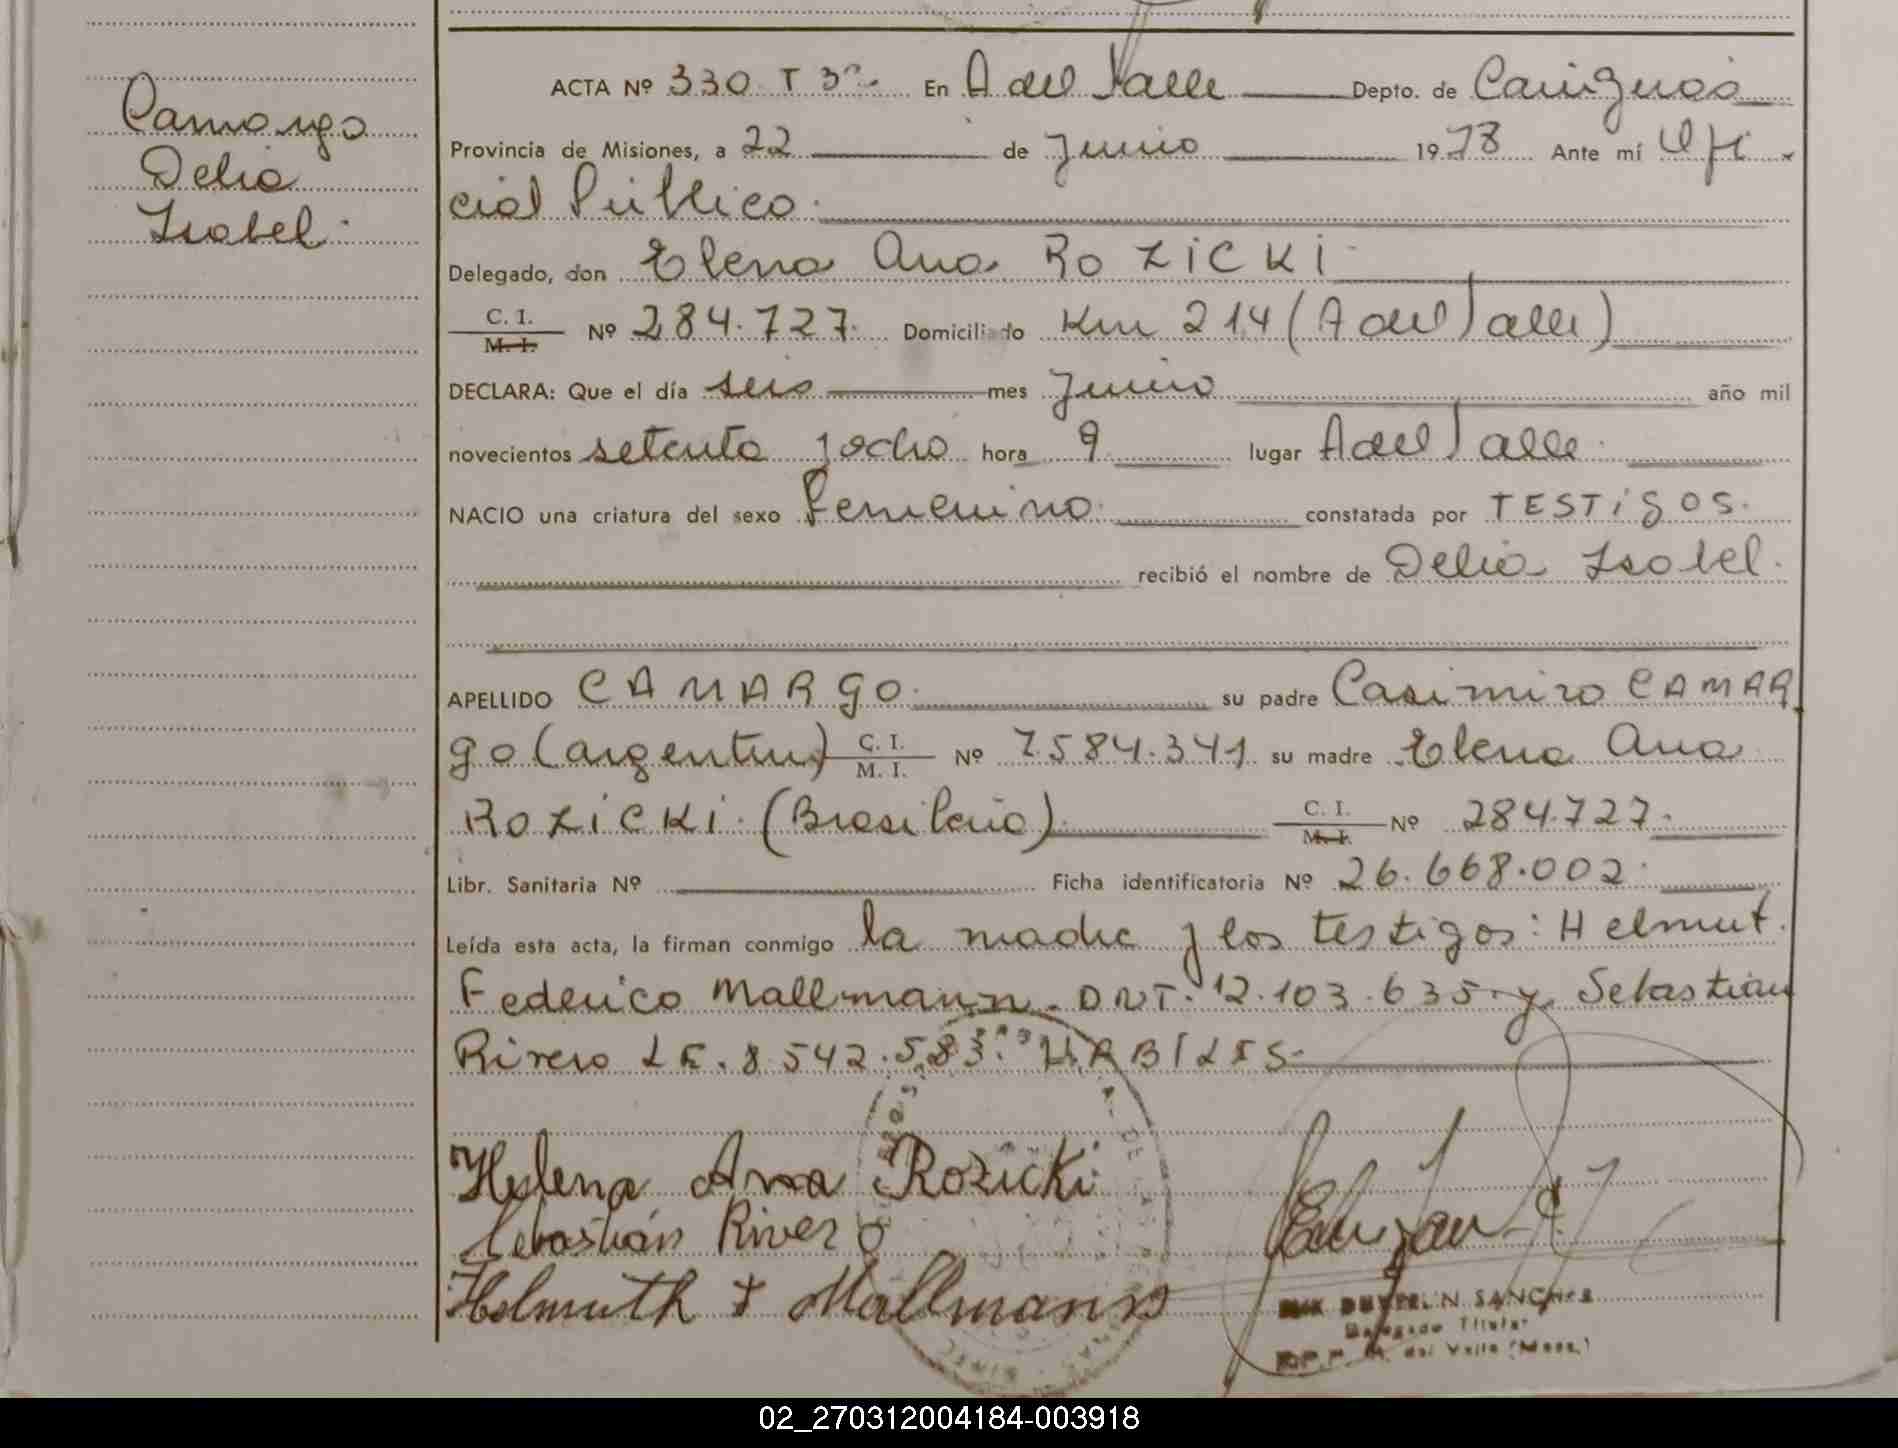 Camargo
Delia
Isabel.
ACTA Nº 330 T 3º En A del Valle Depto. de Cainguás
Provincia de Misiones, a 22 de Junio 1978 Ante mí Ofi
cial Público.
Delegado, don Elena Ana ROZICKI
C. I.
M. I.
Nº 284.727. Domiciliado Km 214 (A del Valle)
DECLARA: Que el día seis mes Junio año mil
novecientos setenta y ocho hora 9 lugar A del Valle.
NACIO una criatura del sexo Femenino. constatada por TESTIGOS.
recibió el nombre de Delia Isabel.
APELLIDO CAMARGO. su padre Casimiro CAMAR
go (argentino) C. I.
M. I.
Nº 7.584.341 su madre Elena Ana
ROZICKI. (Brasileña). C. I.
M. I.
Nº 284.727.
Libr. Sanitaria Nº Ficha identificatoria Nº 26.668.002.
Leída esta acta, la firman conmigo la madre y los testigos: Helmut.
Federico Mallmann. DNI. 12.103.635. y. Sebastian
Rivero LE. 8.542.583. HABILES.
Helena Ana Rozicki
Sebastián Rivero
Helmuth F Mallmann
SANCHES
Delegado Titular
A. del Valle (Mnes.)
02_270312004184-003918